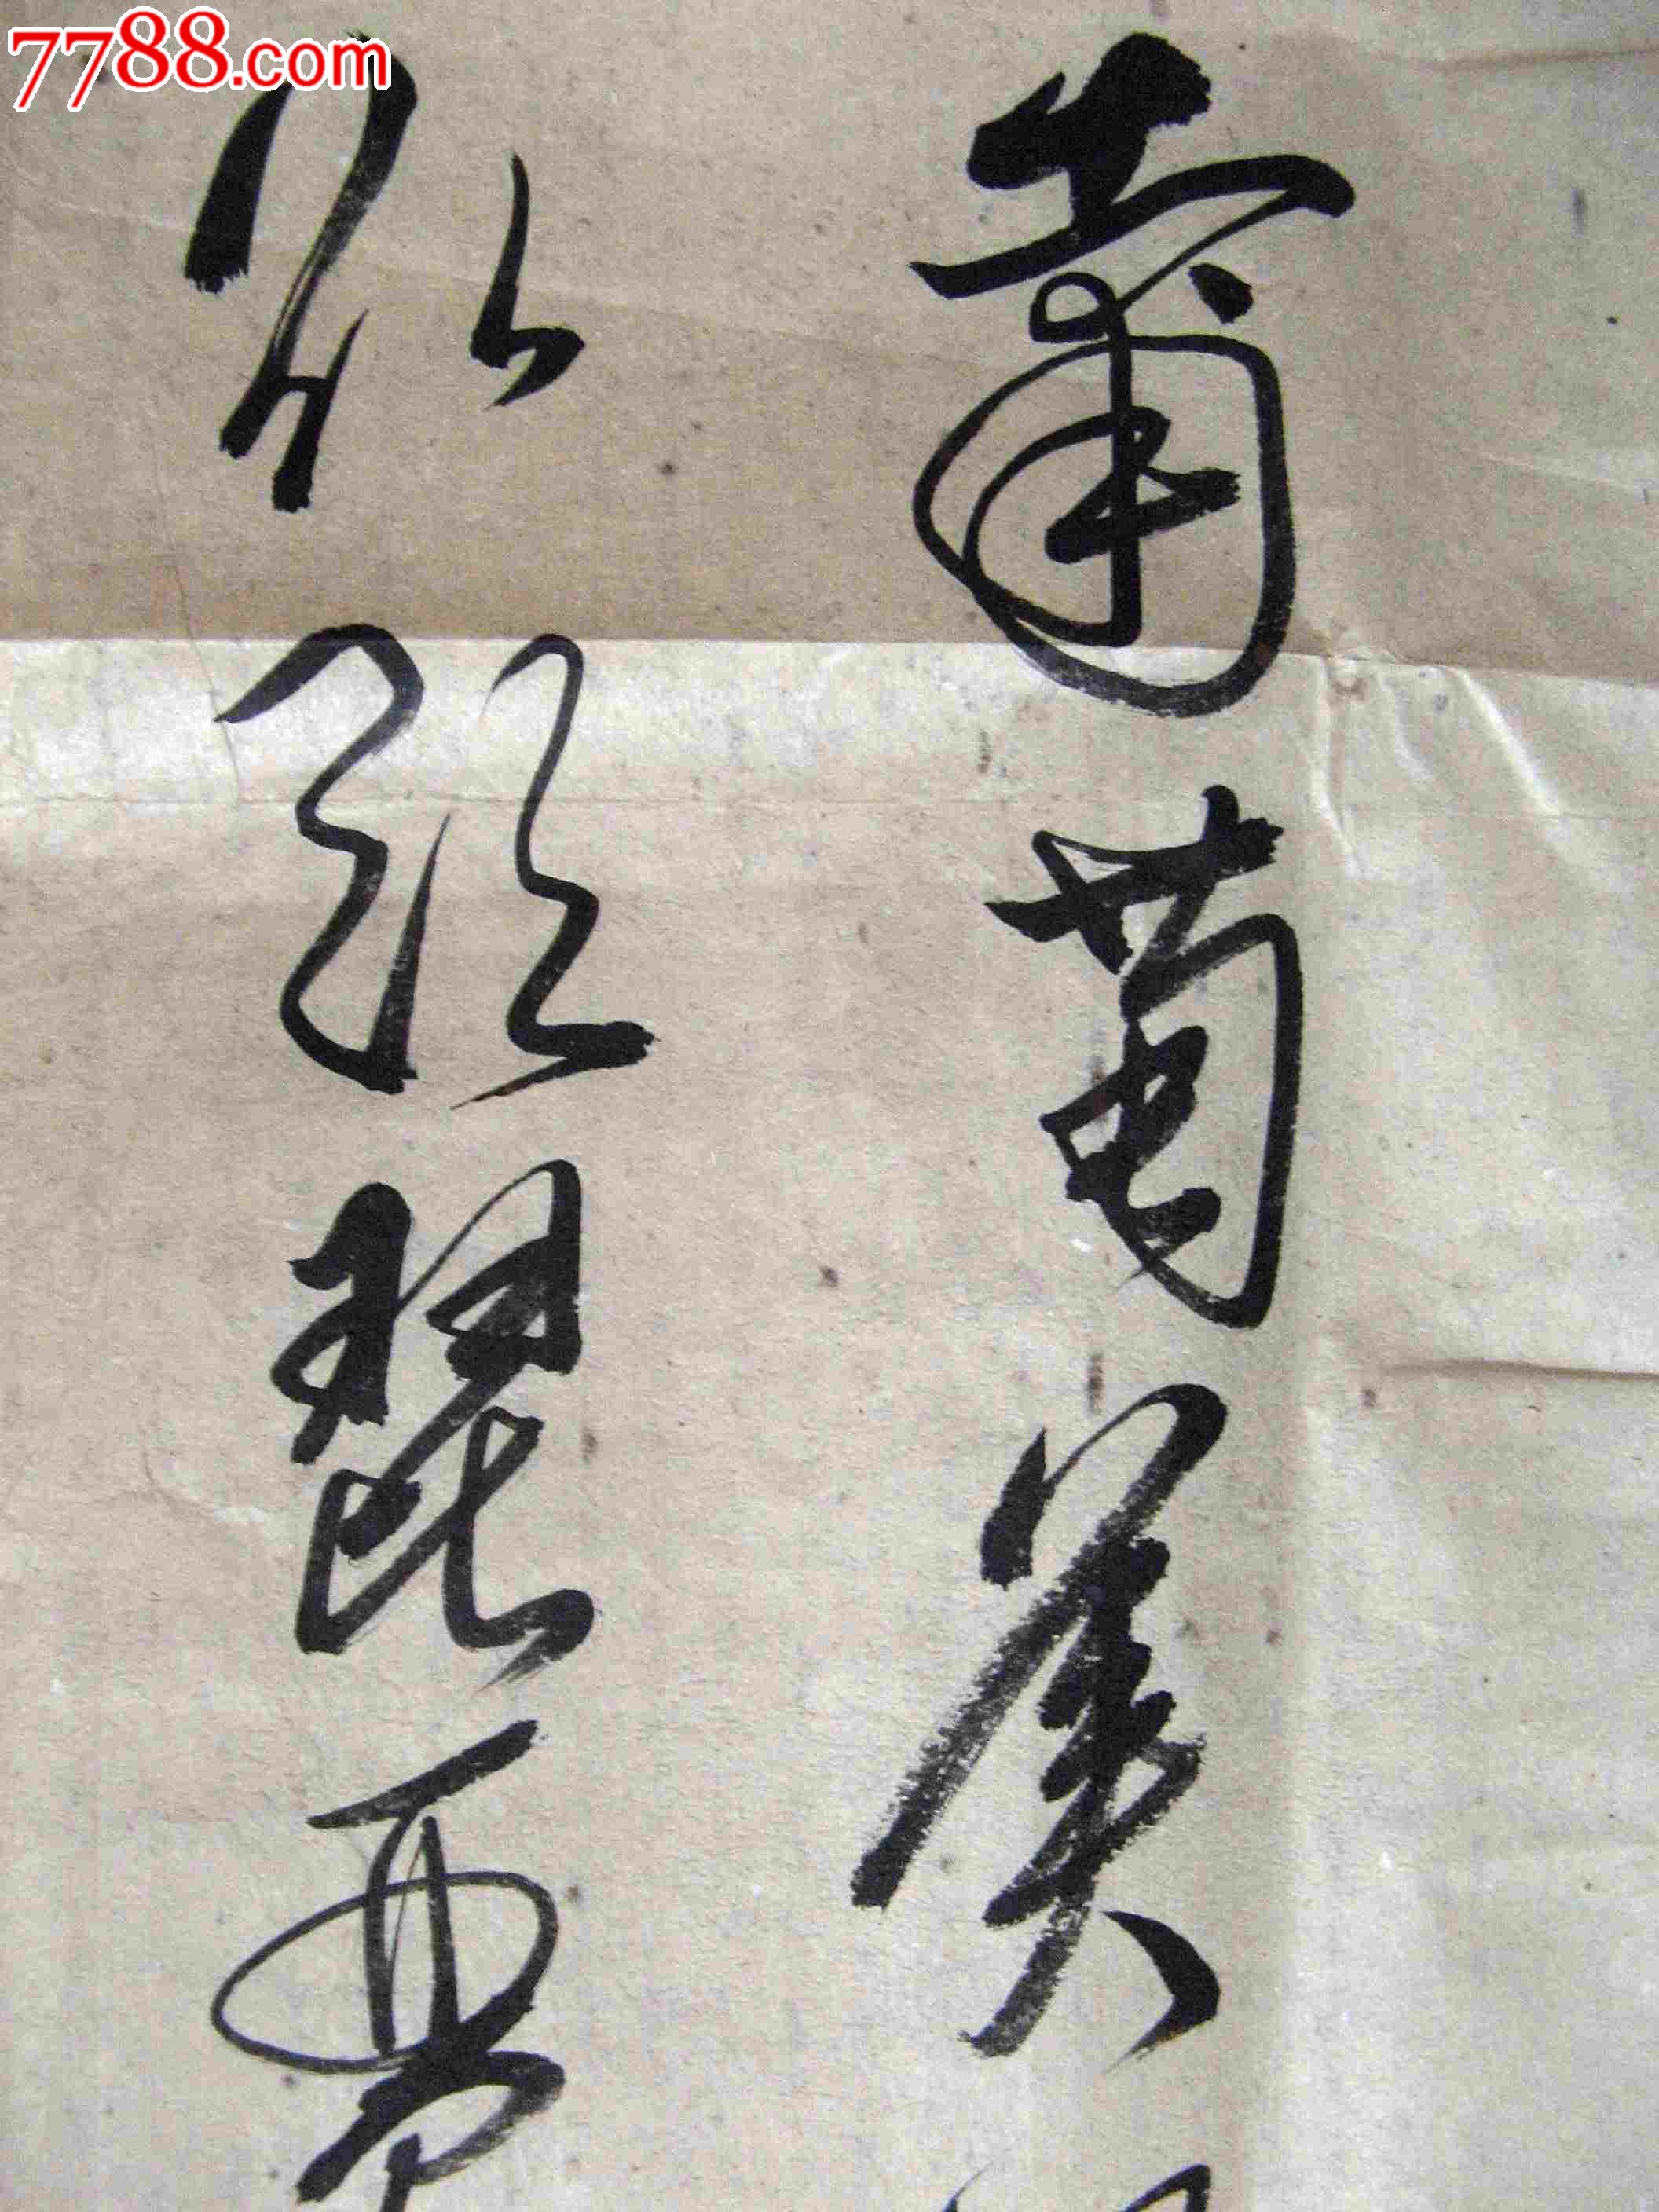 7788.com
葡萄美
欲飲琵琶